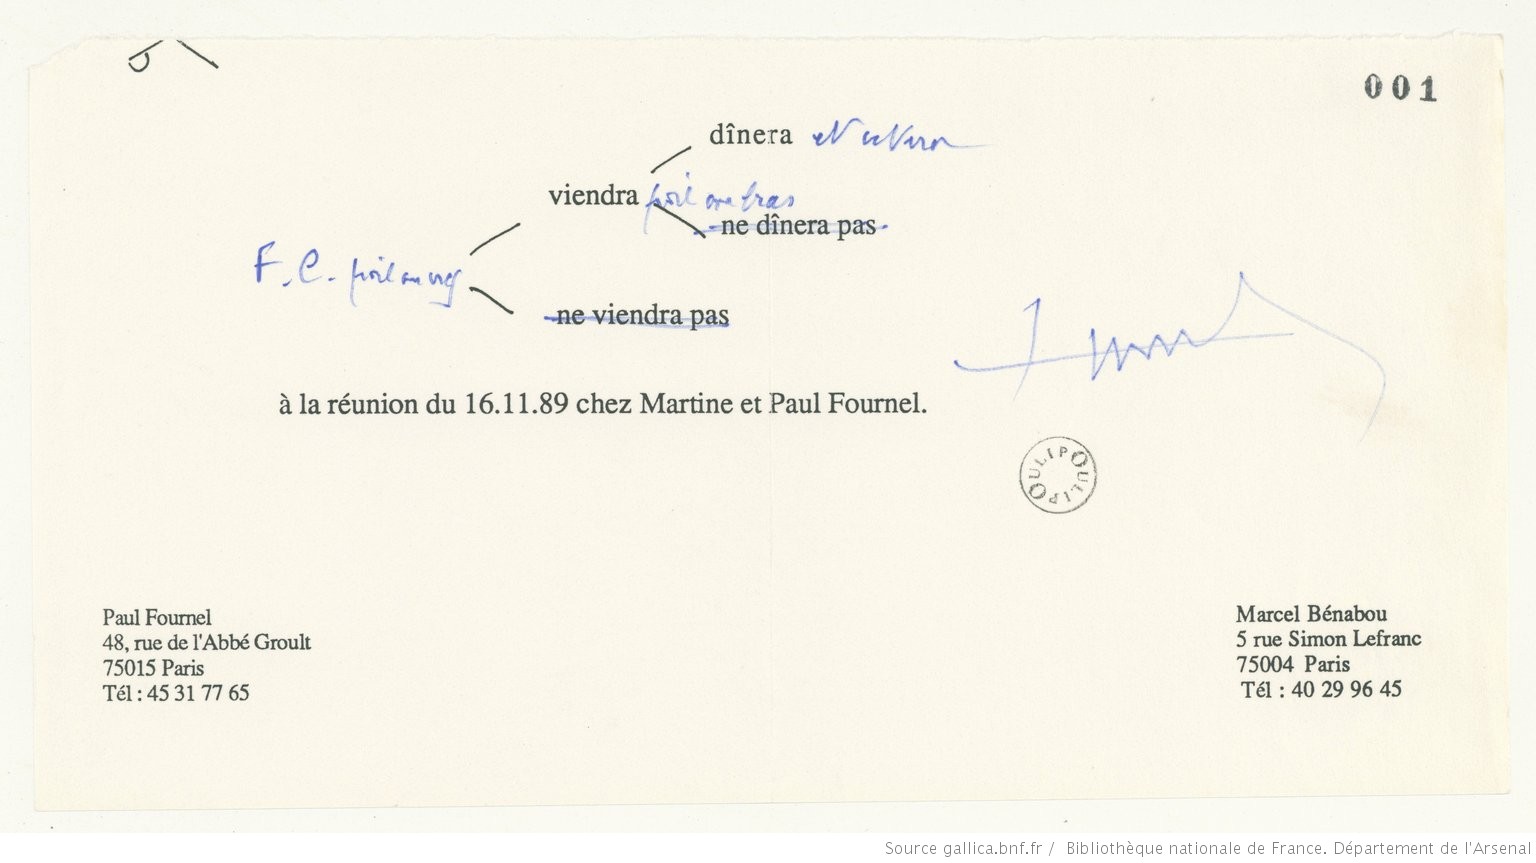 001
dînera
viendra poil au bras
ne dînera pas
F. C. poil au nez
ne viendra pas
à la réunion du 16.11.89 chez Martine et Paul Fournel.
OULIPOULIPO
Paul Fournel
48, rue de l'Abbé Groult
75015 Paris
Tél : 45 31 77 65
Marcel Bénabou
5 rue Simon Lefranc
75004 Paris
Tél : 40 29 96 45
Source gallica.bnf.fr / Bibliothèque nationale de France. Département de l'Arsenal